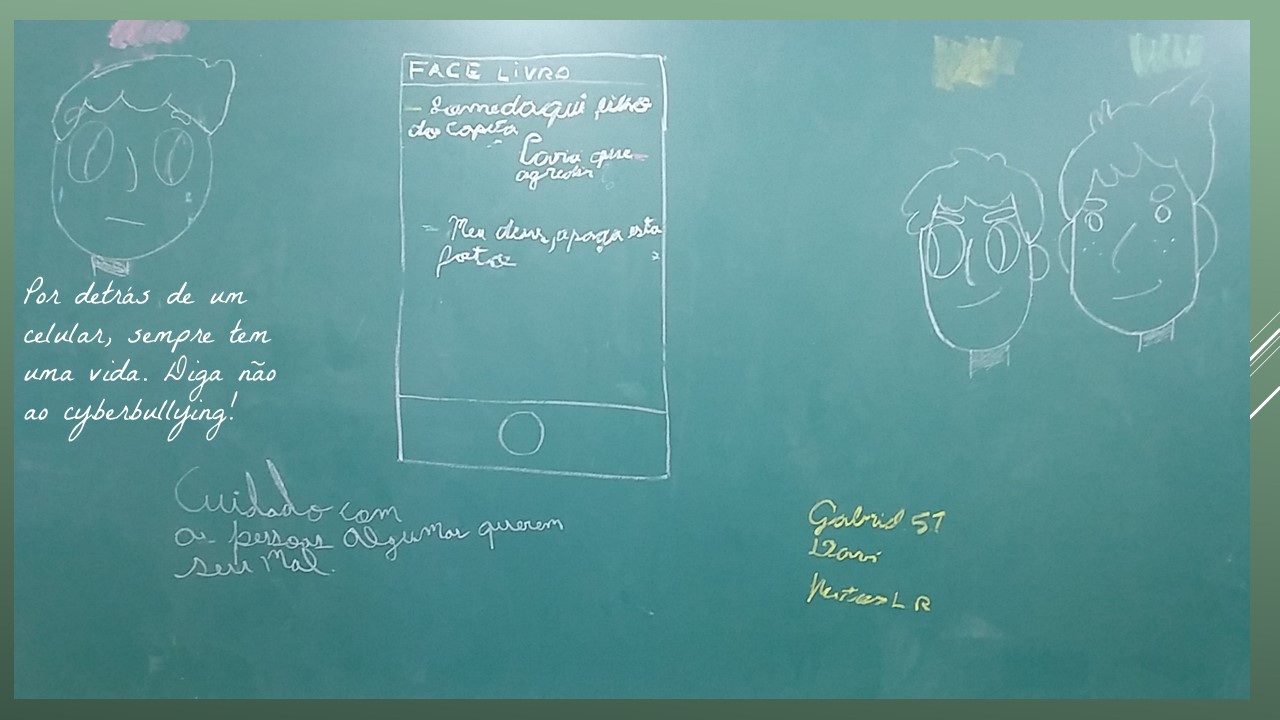 FACE LIVRO
- Some daqui filho
do capeta
Para que
agredir
- Meu deus, apaga esta
foto
Por detrás de um
celular, sempre tem
uma vida. Diga não
ao cyberbullying!
Cuidado com
as pessoas Algumas querem
seu Mal.
Gabriel 51
Davi
L R